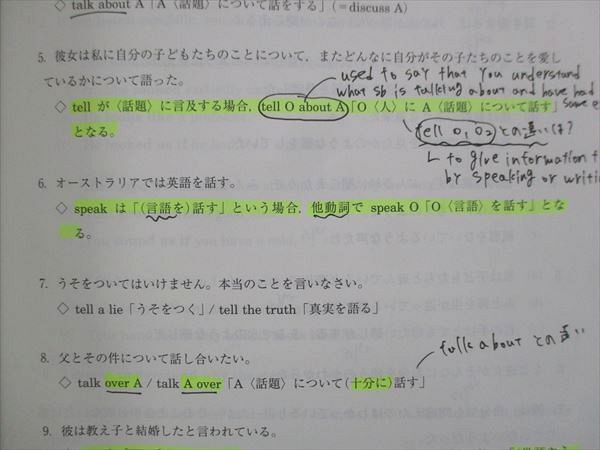 ◇ talk about A「A〈話題〉について話をする」(=discuss A)
5. 彼女は私に自分の子どもたちのことについて，またどんなに自分がその子たちのことを愛し
ているかについて語った。
used to say that you understand
what sb is talking about and have had
◇ tell が〈話題〉に言及する場合，tell O about A「O〈人〉に A〈話題〉について話す」 same e
となる。
tell O₁ O₂ との違いは?
to give information t
by speaking or writi
6. オーストラリアでは英語を話す。
◇ speak は「(言語を)話す」という場合，他動詞で speak O「O〈言語〉を話す」とな
る。
7. うそをついてはいけません。本当のことを言いなさい。
◇ tell a lie「うそをつく」/ tell the truth「真実を語る」
talk about との違い
8. 父とその件について話し合いたい。
◇ talk over A / talk A over「A〈話題〉について(十分に)話す」
9. 彼は教え子と結婚したと言われている。